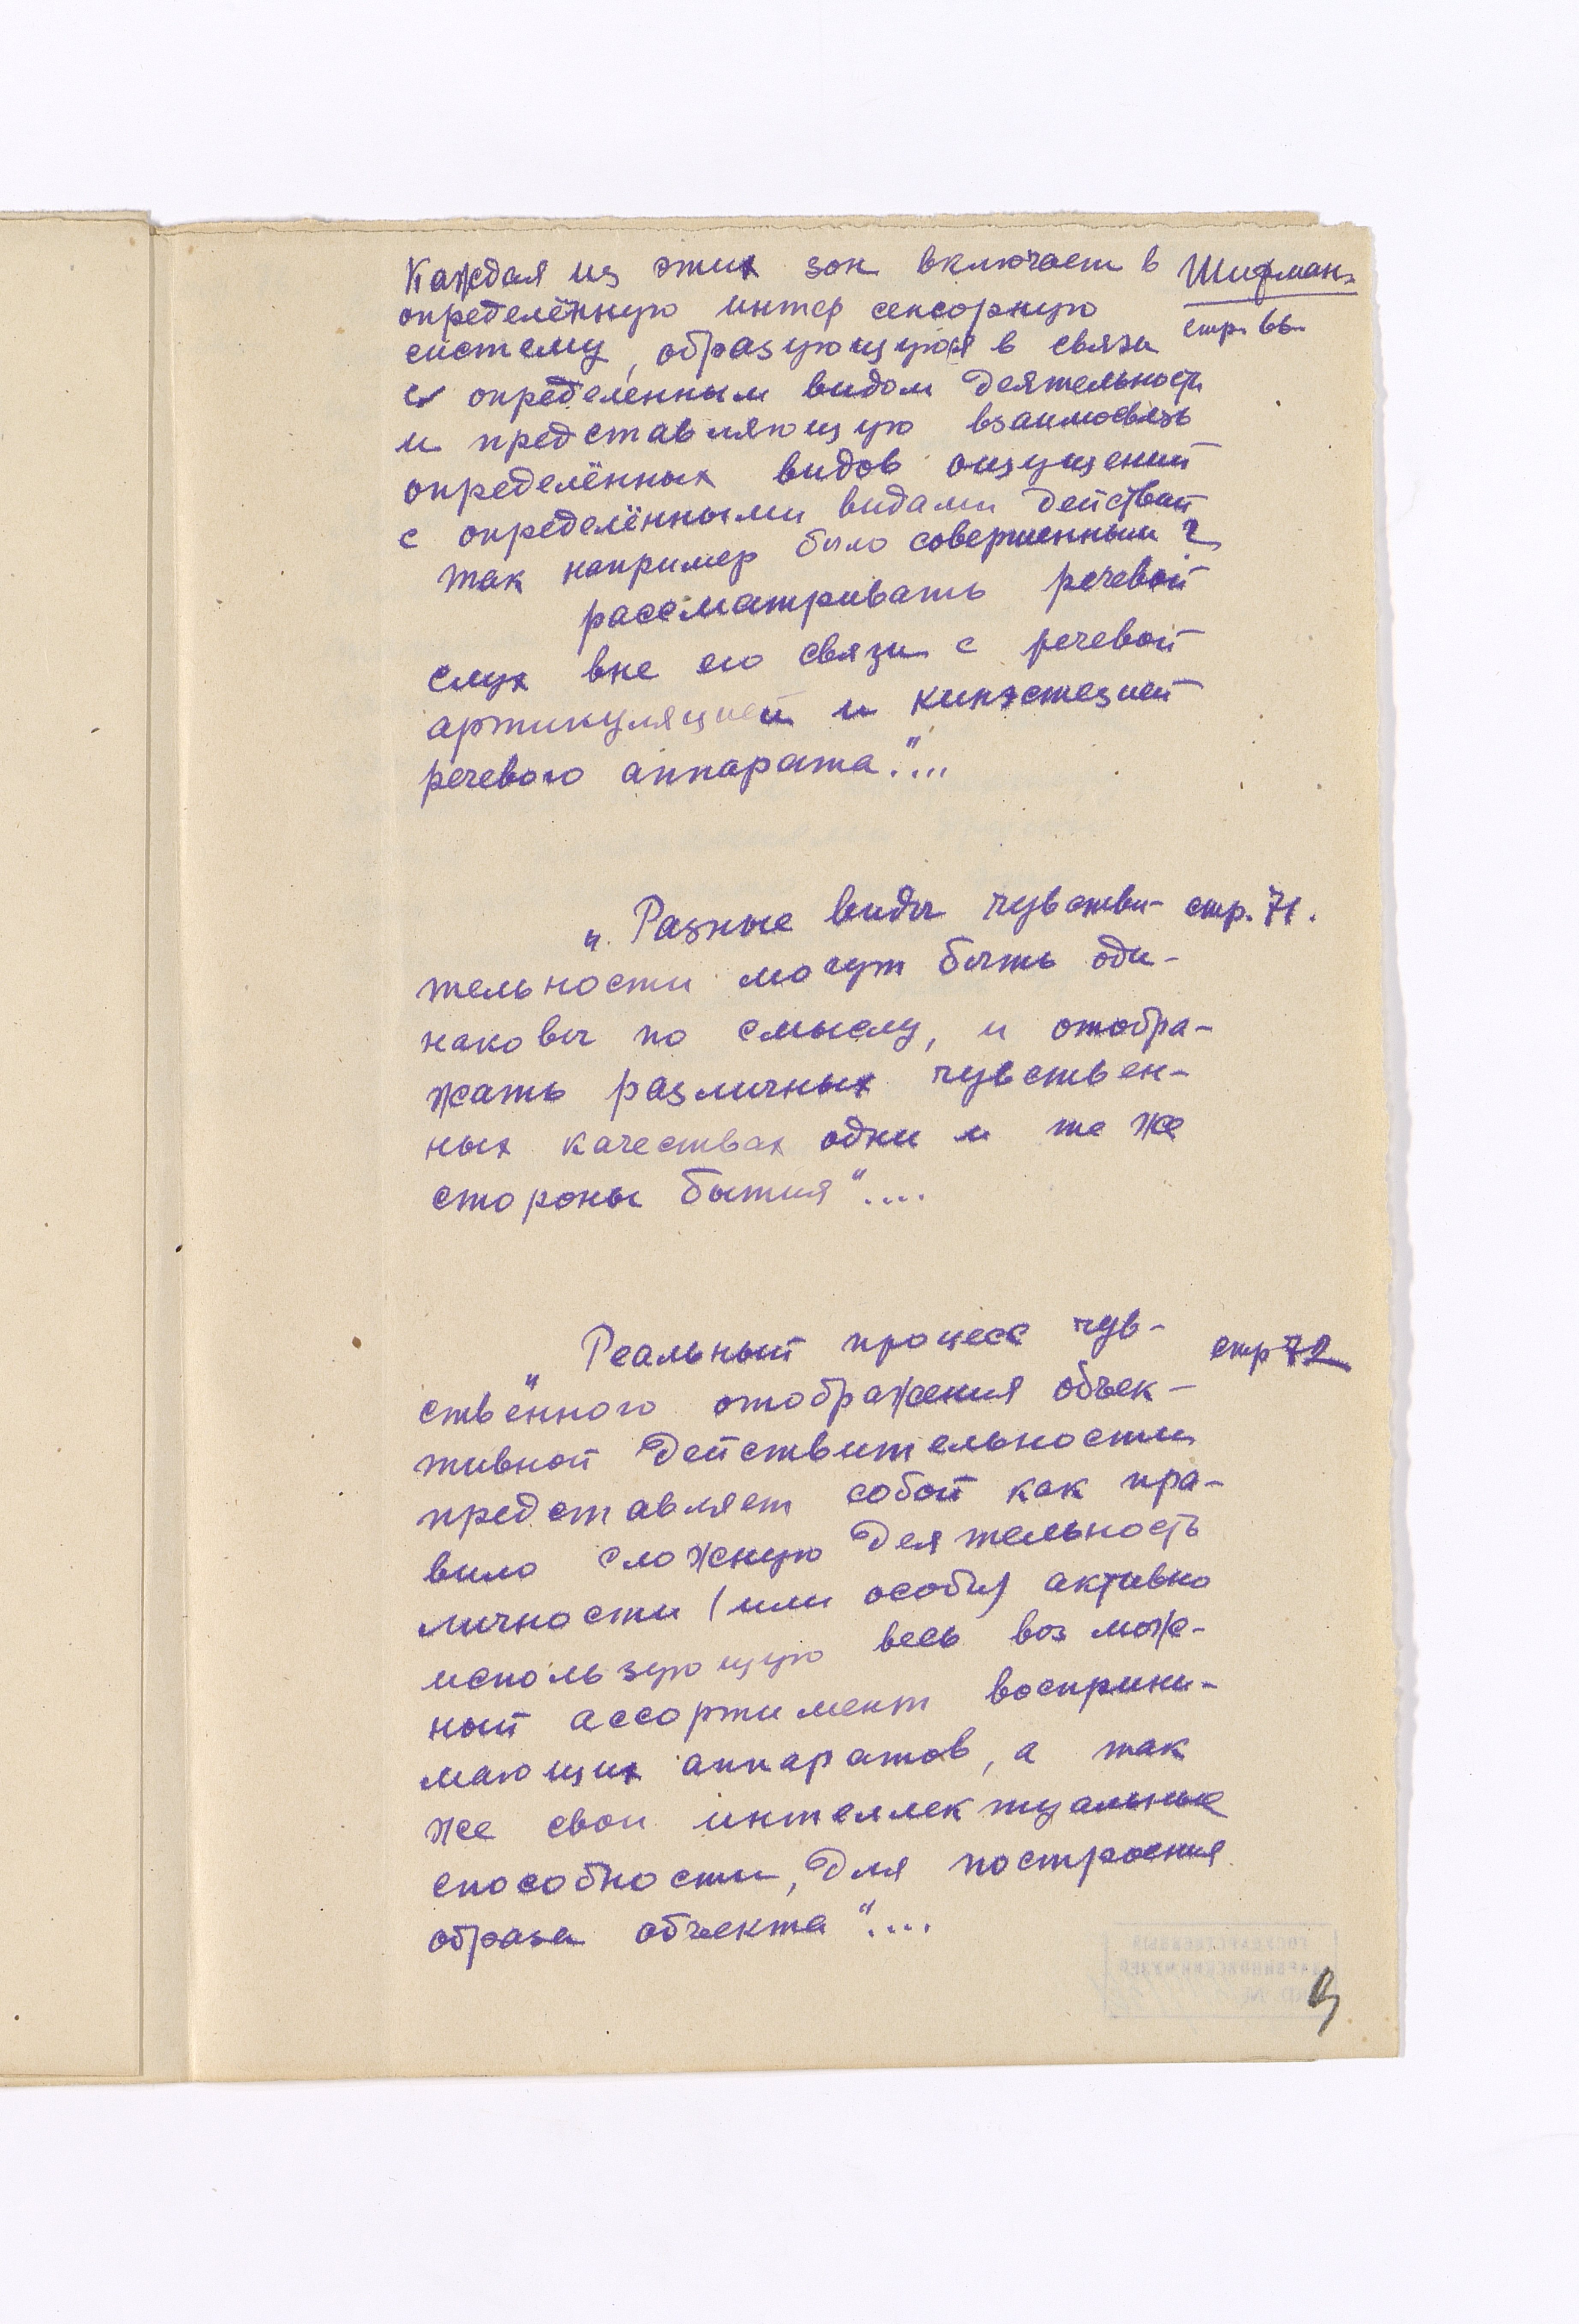 Каждая из этих зон включает в Шифман.
определённую интер сенсорную
стр. 66.
систему, образующуюся в связи
с определенным видом деятельности
и представляющую взаимосвязь
определённых видов ощущений
с определёнными видами действий
так например было совершенным
рассматривать речевой
слух вне его связи с речевой
артикуляцией и кинэстезией
речевого аппарата."...
„Разные виды чувстви- стр. 71.
тельности могут быть оди-
наковы по смыслу, и отобра-
жать различных чувствен-
ных качествах одни и те же
стороны бытия"....
„Реальный процесс чув- стр 72
ственного отображения объек-
тивной действительности
представляет собой как пра-
вило сложную деятельность
личности (или особи) активно
использующую весь возмож-
ный ассортимент восприни-
мающих аппаратов, а так
же свои интеллектуальные
способности, для построения
образа объекта"....
ГОСУДАРСТВЕННЫЙ
ДАРВИНОВСКИЙ МУЗЕЙ
9